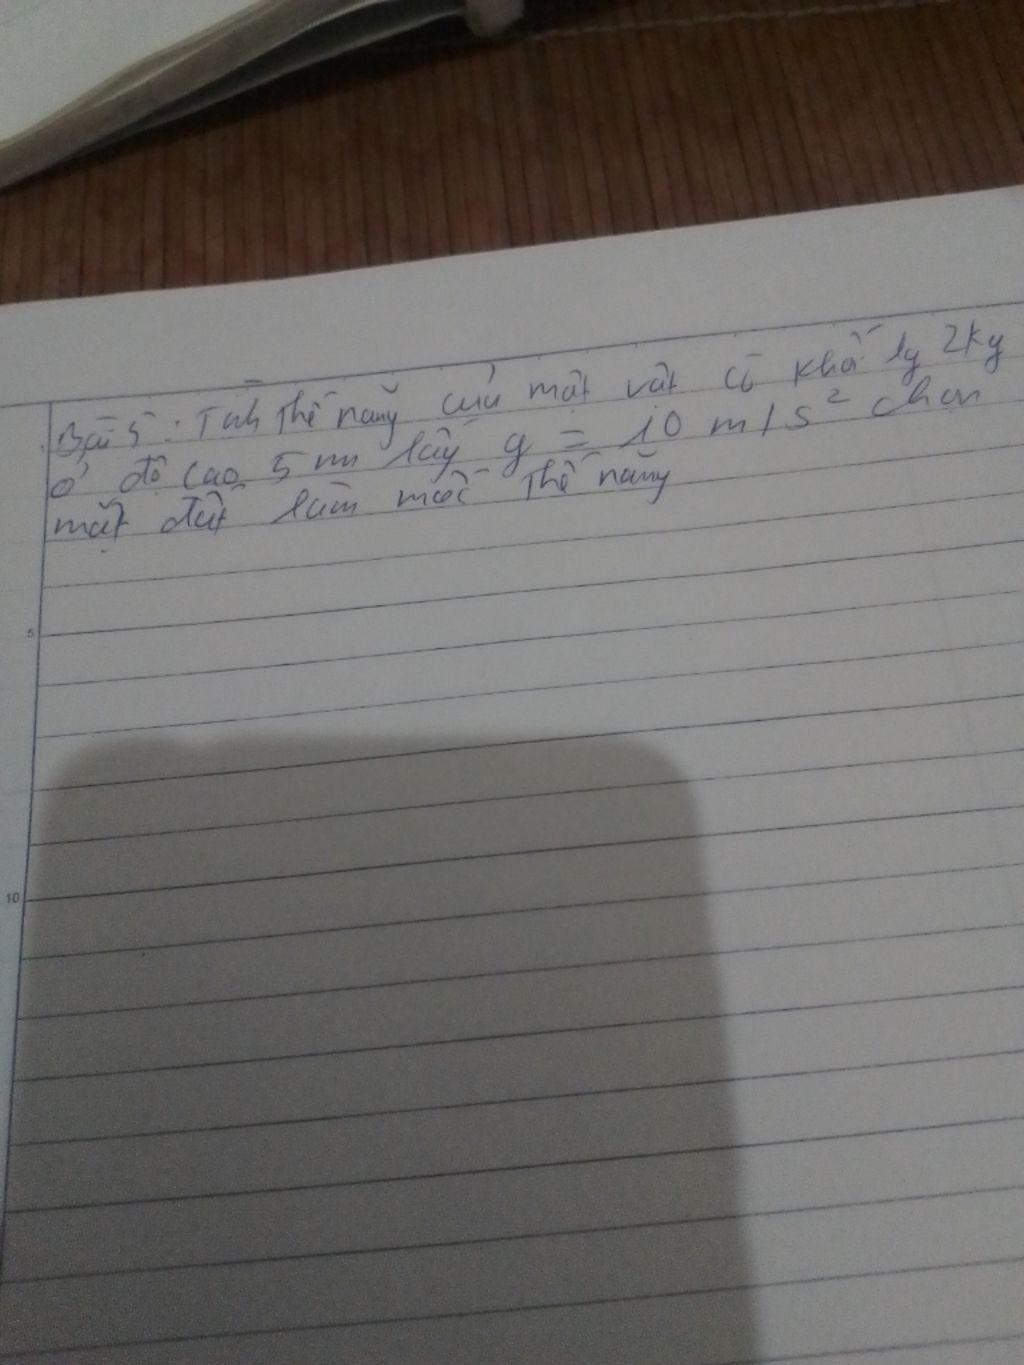 Bài 5: Tính thế năng của một vật có khối lg 2kg
ở độ cao 5 m lấy g = 10 m/s² chọn
mặt đất làm mốc thế năng
5
10